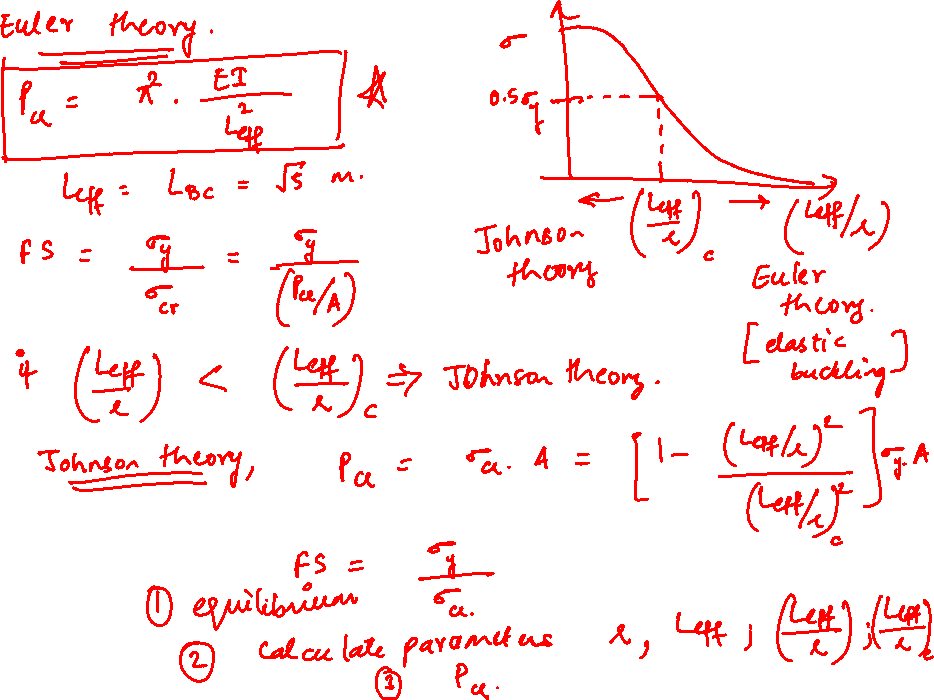 Euler theory.
P_cr = π² · EI / L²_eff
L_eff = L_BC = √5 m.
FS = σ_y / σ_cr = σ_y / (P_cr/A)
σ
0.5σ_y
(L_eff/r)_c
(L_eff/r)
Johnson
theory
Euler
theory.
[elastic
buckling]
if (L_eff/r) < (L_eff/r)_c ⇒ Johnson theory.
Johnson theory, P_cr = σ_cr · A = [1 - (L_eff/r)² / (L_eff/r)²_c] σ_y · A
FS = σ_y / σ_cr.
① equilibrium
② calculate parameters r, L_eff ; (L_eff/r) ; (L_eff/r)_c
③ P_cr.